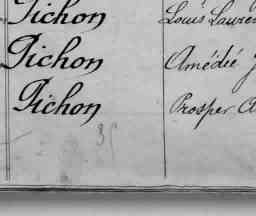 Pichon Louis Laure
Pichon Amédié J
Pichon Prosper A
35